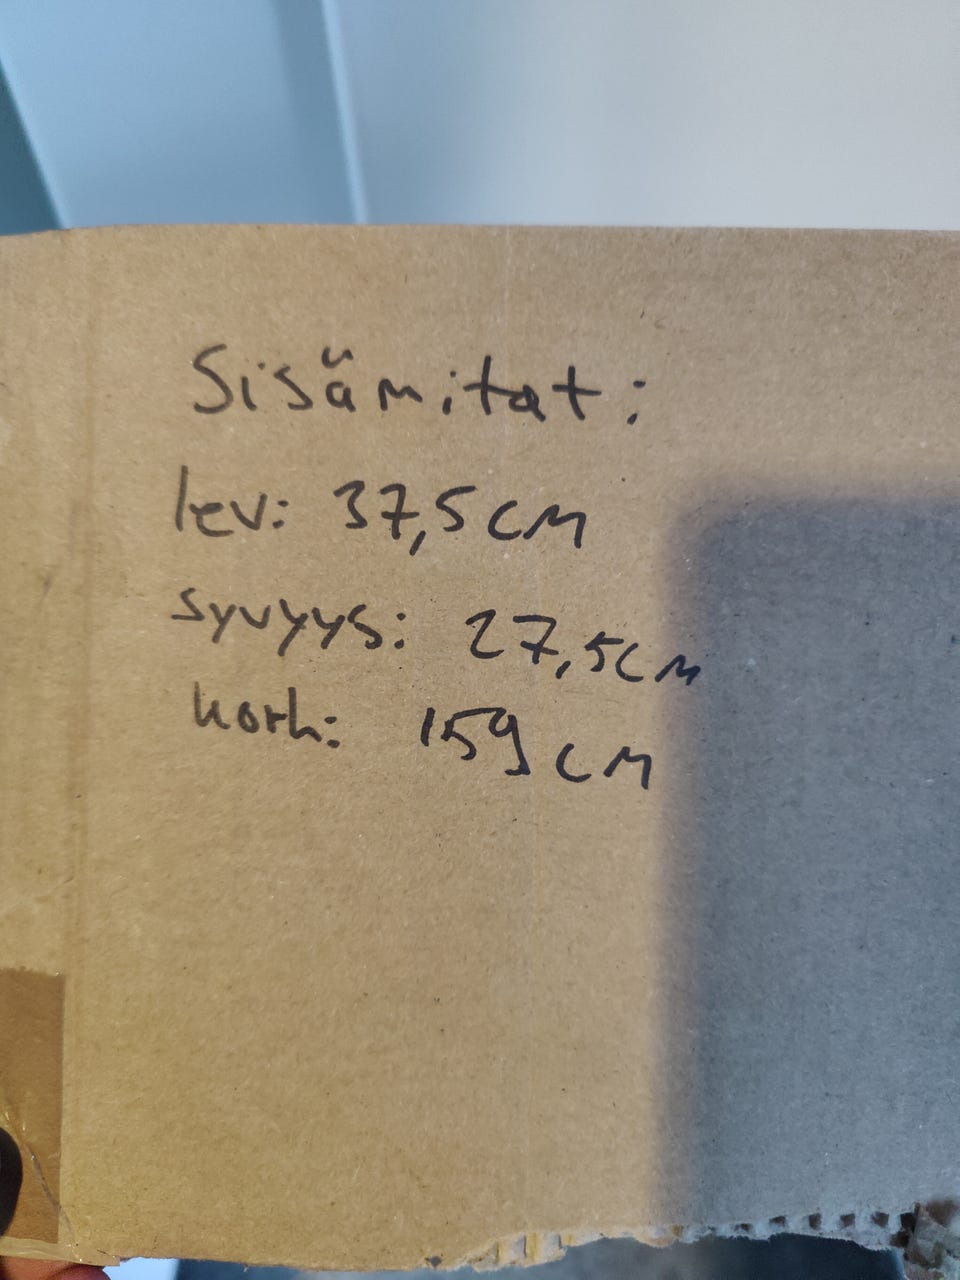 Sisämitat:
lev: 37,5 cm
syvyys: 27,5 cm
kork: 159 cm